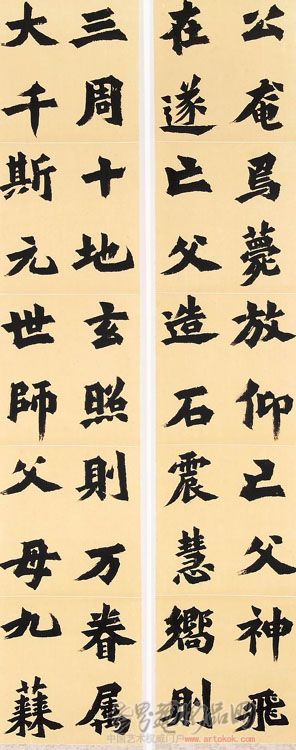 公奄焉薨放仰己父神飛
在遂亡父造石震慧嚮則
三周十地玄照則万眷属
大千斯元世師父母九蕀
中国艺术权威门户 www.artokok.com